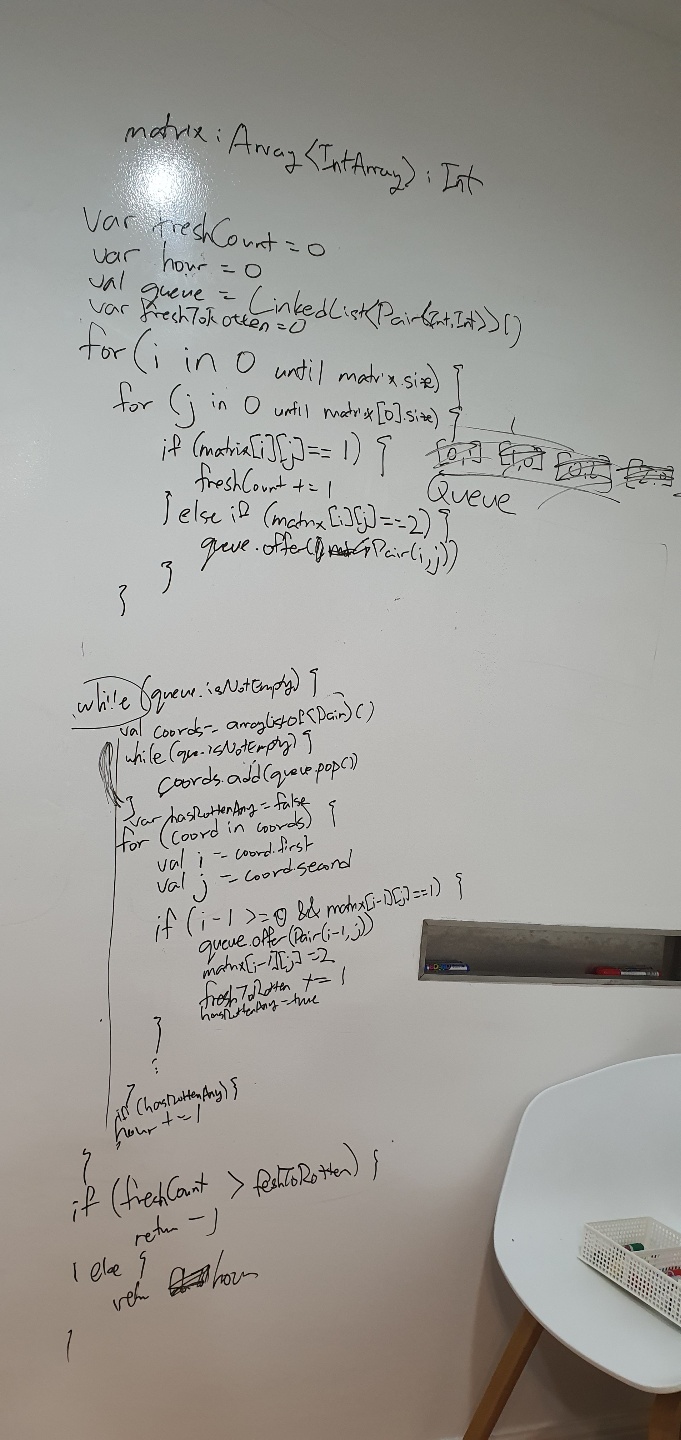 matrix : Array<IntArray> : Int
var freshCount = 0
var hour = 0
val queue = LinkedList<Pair<Int,Int>>()
var freshToRotten = 0
for (i in 0 until matrix.size) {
for (j in 0 until matrix[0].size) {
if (matrix[i][j] == 1) {
freshCount += 1
} else if (matrix[i][j] == 2) {
queue.offer(Pair(i,j))
}
}
1
[0,1] [1,0]
Queue
while (queue.isNotEmpty) {
val coords = arraylistof<Pair>()
while (que.isNotEmpty) {
coords.add(queue.pop())
}
var hasRottenAny = false
for (coord in coords) {
val i = coord.first
val j = coord.second
if (i-1 >= 0 && matrix[i-1][j] == 1) {
queue.offer(Pair(i-1, j))
matrix[i-1][j] = 2
freshToRotten += 1
hasRottenAny = true
}
:
}
if (hasRottenAny) {
hour += 1
}
}
if (freshCount > feshToRotten) {
return -1
} else {
retu hour
}